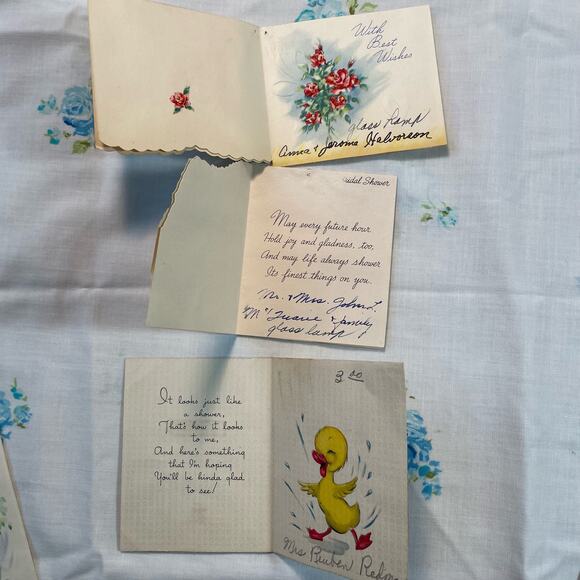 With
Best
Wishes
glass lamp
Anna & Jerome Halvorson
idal Shower
May every future hour
Hold joy and gladness, too,
And may life always shower
Its finest things on you.
Mr. & Mrs. John
& family
glass lamp
It looks just like
a shower,
That's how it looks
to me,
And here's something
that I'm hoping
You'll be kinda glad
to see!
3 00
Mrs Reuben